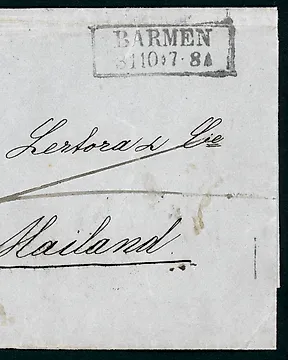 BARMEN
31 10 ◊ 7 · 8 A
Lertora & Cie
Mailand